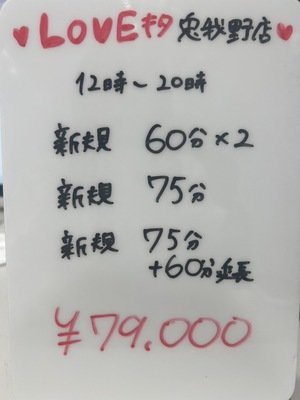 ♥LOVEキタ 兎我野店♥
12時〜20時
新規 60分×2
新規 75分
新規 75分
+60分延長
¥79.000